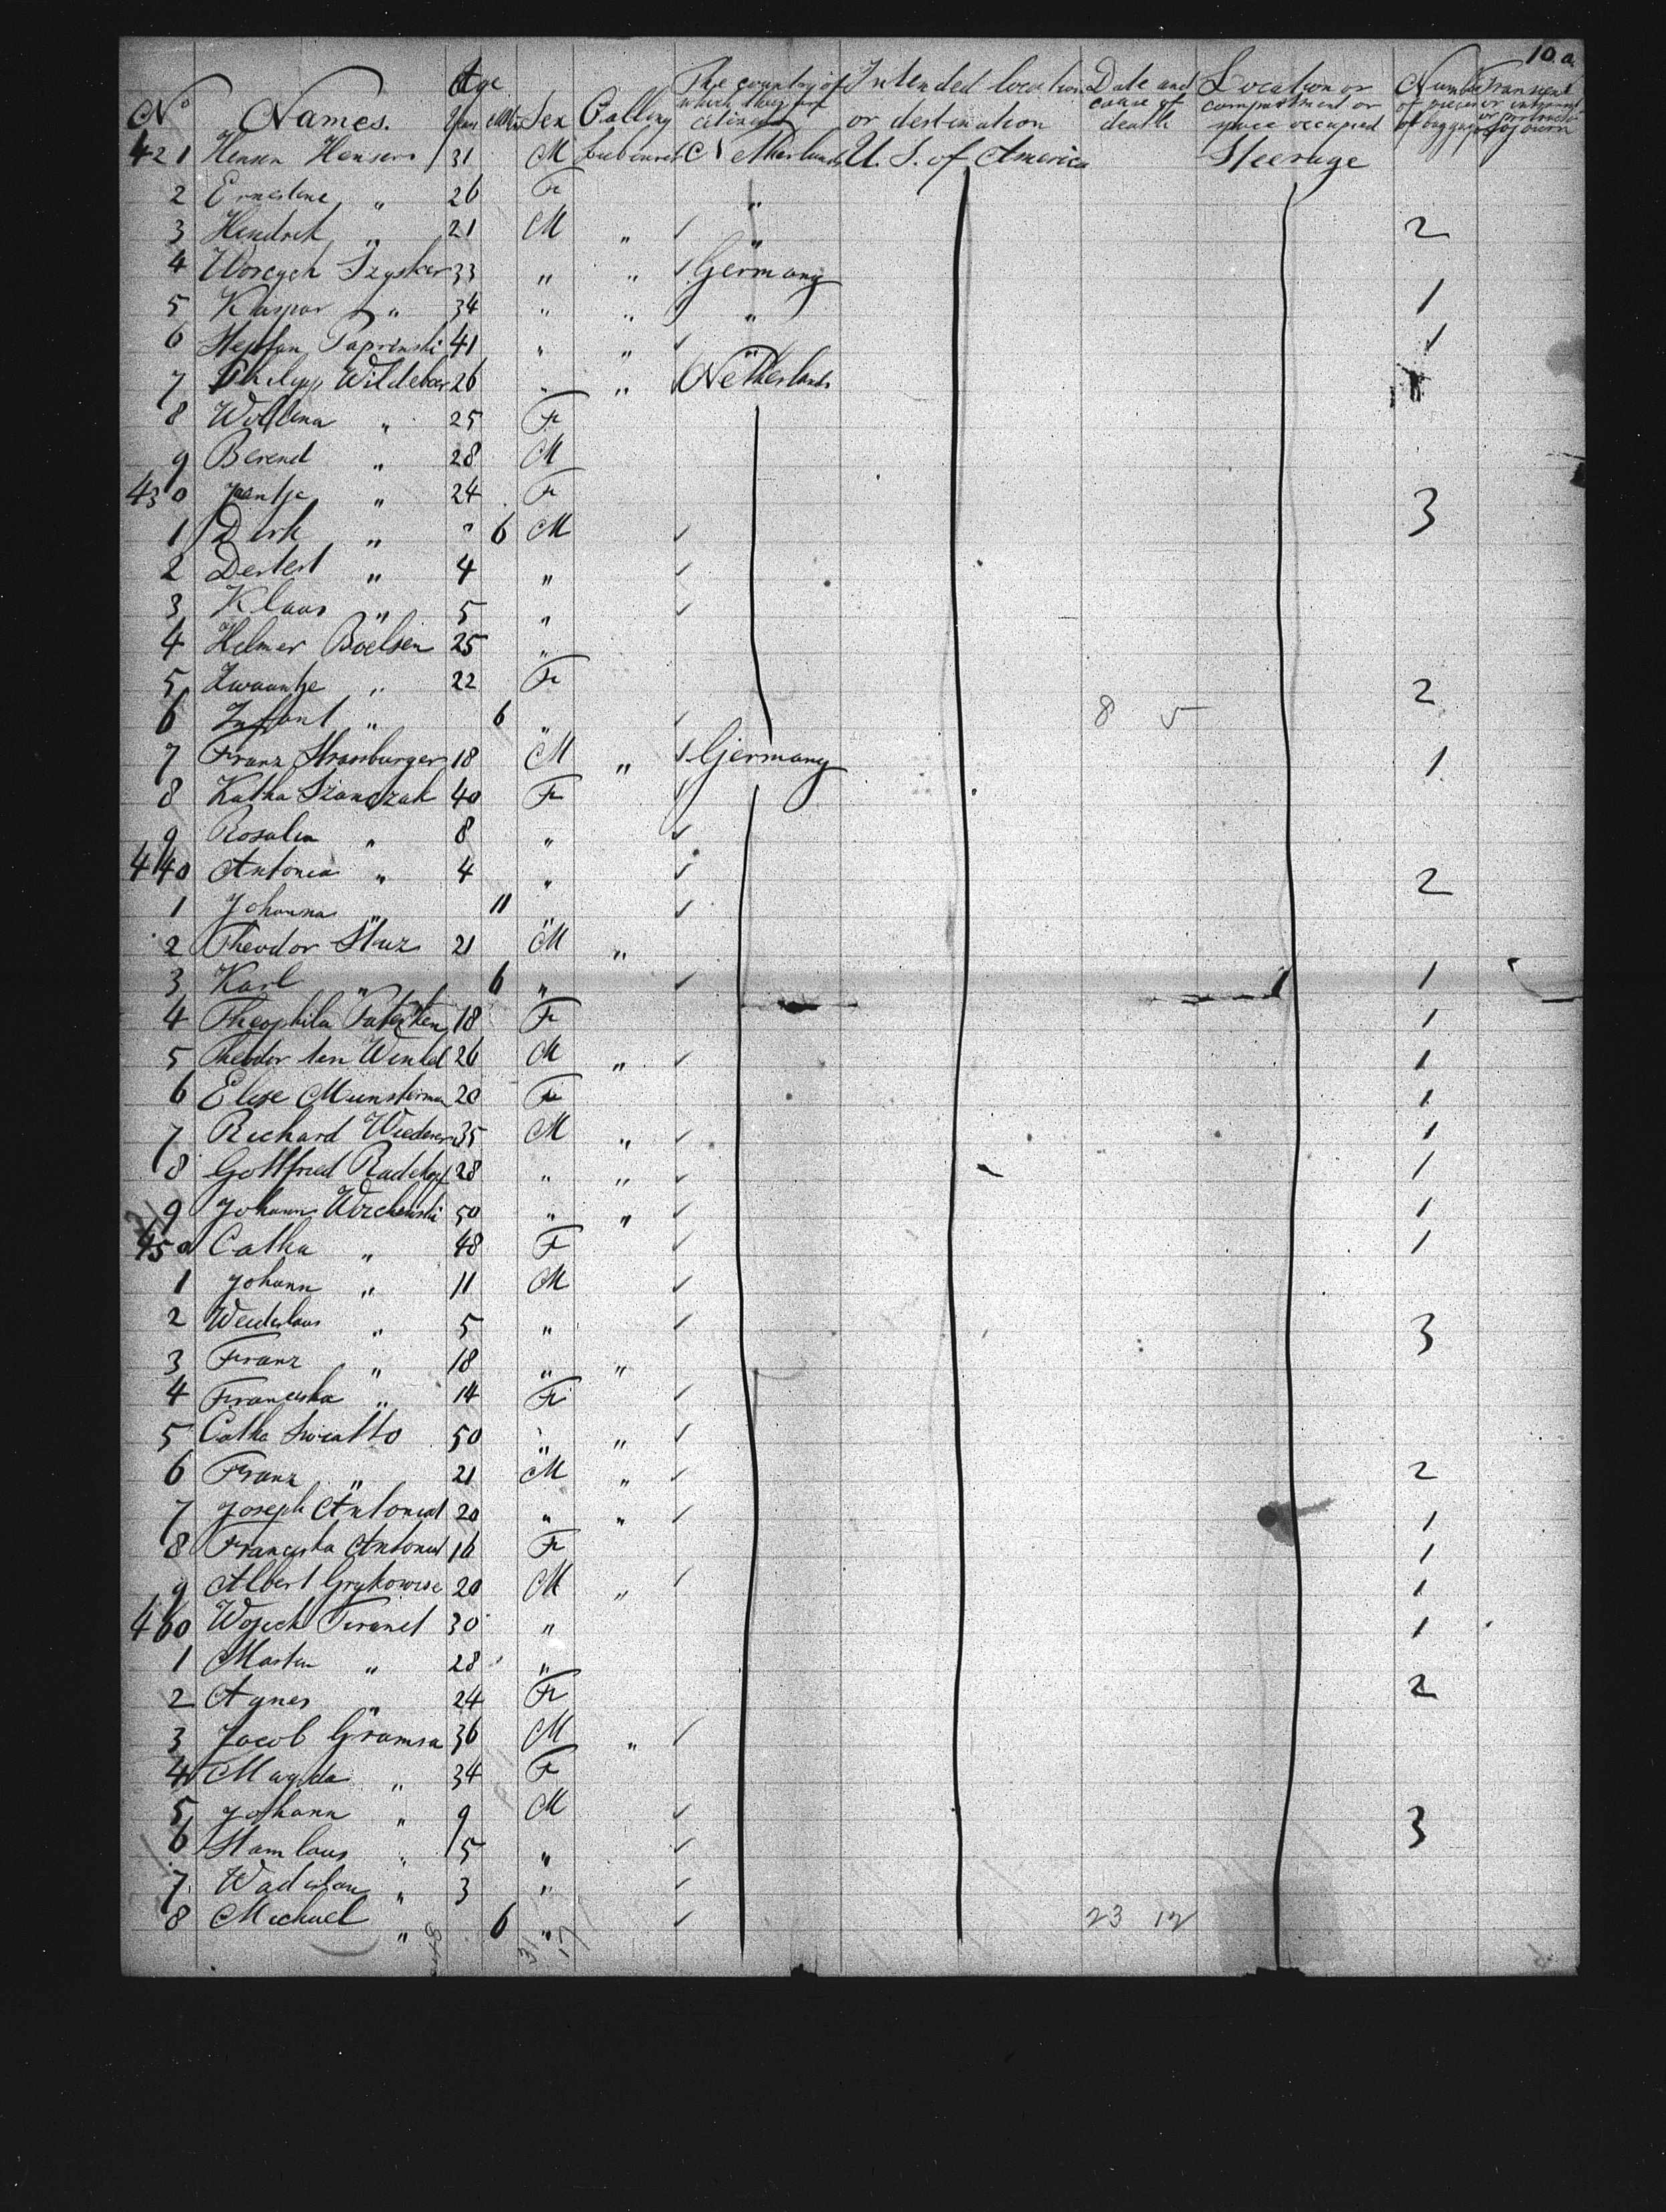 10a
No Names. Age Years Mths Sex Calling The country of which they are citizens Intended location or destination Date and cause of death Location or compartment or space occupied Number of pieces of baggage Transient or intransit or protracted sojourn
421 Hensen Hensen 31 M labourer Netherlands U. S. of America Steerage
2 Ernestine " 26 Fe "
3 Hendrik " 21 M " " 2
4 Woicych Szysker 33 " " Germany
5 Kaspar " 34 " " " 1
6 Stephan Paprinski 41 " " " 1
7 Philipp Wildeboer 26 " " Netherlands 1
8 Willena " 25 Fe
9 Berend " 28 M
430 Jantje " 24 Fe 3
1 Dirk " " 6 M
2 Dertert " 4 "
3 Klaas " 5 "
4 Helmer Boelsen 25 "
5 Zwaantje " 22 Fe 2
6 Infant " 6 " 8 5
7 Franz Strassburger 18 M " Germany 1
8 Katha Szanczak 40 Fe
9 Rosalia " 8 "
440 Antonia " 4 " 2
1 Johanna " 11 "
2 Theodor Stuz 21 M "
3 Karl " 6 " 1
4 Theophila 18 Fe 1
5 Theodor ten Winkel 26 M " 1
6 Elise Munsterman 20 Fe 1
7 Richard Wiederer 35 M " 1
8 Gottfried Radekopf 28 " " 1
9 Johann Wirchenski 50 " " 1
450 Catha " 48 Fe 1
1 Johann " 11 M
2 Weideslaus " 5 " 3
3 Franz " 18 " "
4 Franciska " 14 Fe
5 Catha Swiatto 50 " "
6 Franz " 21 M " 2
7 Joseph Antoniat 20 " " 1
8 Franciska Antoniat 16 Fe 1
9 Albert Grykowise 20 M " 1
460 Wojech Firanet 30 " 1
1 Martin " 28 "
2 Agnes " 24 Fe 2
3 Jacob Gramsa 36 M "
4 Magda " 34 Fe
5 Johann " 9 M 3
6 Stanislaus " 5 "
7 Wadislau " 3 "
8 Michael " 6 " 23 12